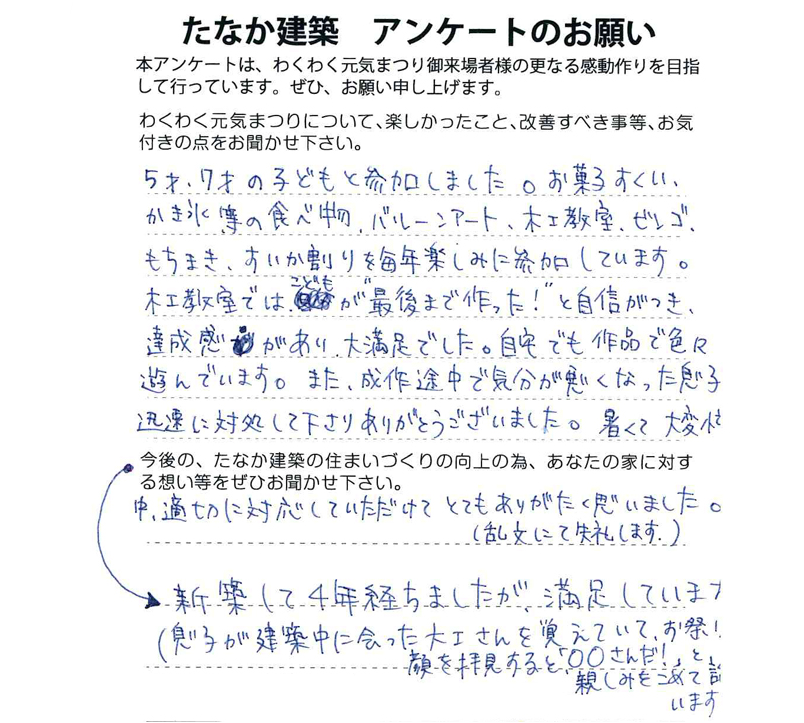 たなか建築　アンケートのお願い
本アンケートは、わくわく元気まつり御来場者様の更なる感動作りを目指
して行っています。ぜひ、お願い申し上げます。
わくわく元気まつりについて、楽しかったこと、改善すべき事等、お気
付きの点をお聞かせ下さい。
5才、7才の子どもと参加しました。お菓子すくい、
かき氷等の食べ物、バルーンアート、木工教室、ビンゴ、
もちまき、すいか割りを毎年楽しみに参加しています。
木工教室では、こどもが"最後まで作った!"と自信がつき、
達成感があり、大満足でした。自宅でも作品で色々
遊んでいます。また、成作途中で気分が悪くなった息子
迅速に対処して下さりありがとうございました。暑くて大変
今後の、たなか建築の住まいづくりの向上の為、あなたの家に対す
る想い等をぜひお聞かせ下さい。
中、適切に対応していただけてとてもありがたく思いました。
(乱文にて失礼します。)
新築して4年経ちましたが、満足していま
(息子が建築中に会った大工さんを覚えていて、お祭り
顔を拝見すると「〇〇さんだ!」と、
親しみをこめて
います